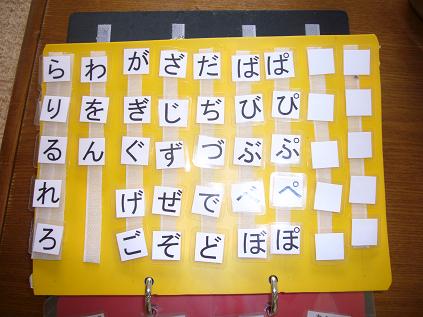 ら わ が ざ だ ば ぱ
り を ぎ じ ぢ び ぴ
る ん ぐ ず づ ぶ ぷ
れ げ ぜ で べ ぺ
ろ ご ぞ ど ぼ ぽ